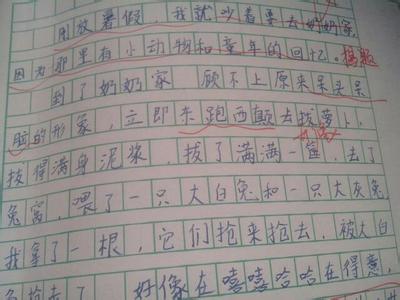 刚放暑假，我就吵着要去奶奶家
因为那里有小动物和童年的回忆。
到了奶奶家 顾不上原来呆头呆
脑的形象，立即东跑西颠去拔萝卜，
拔得满身泥浆，拔了满满一筐，去了
兔窝，喂了一只大白兔和一只大灰兔
我拿了一根，它们抢来抢去，被大白
抢去了 好像在嘻嘻哈哈在得意，